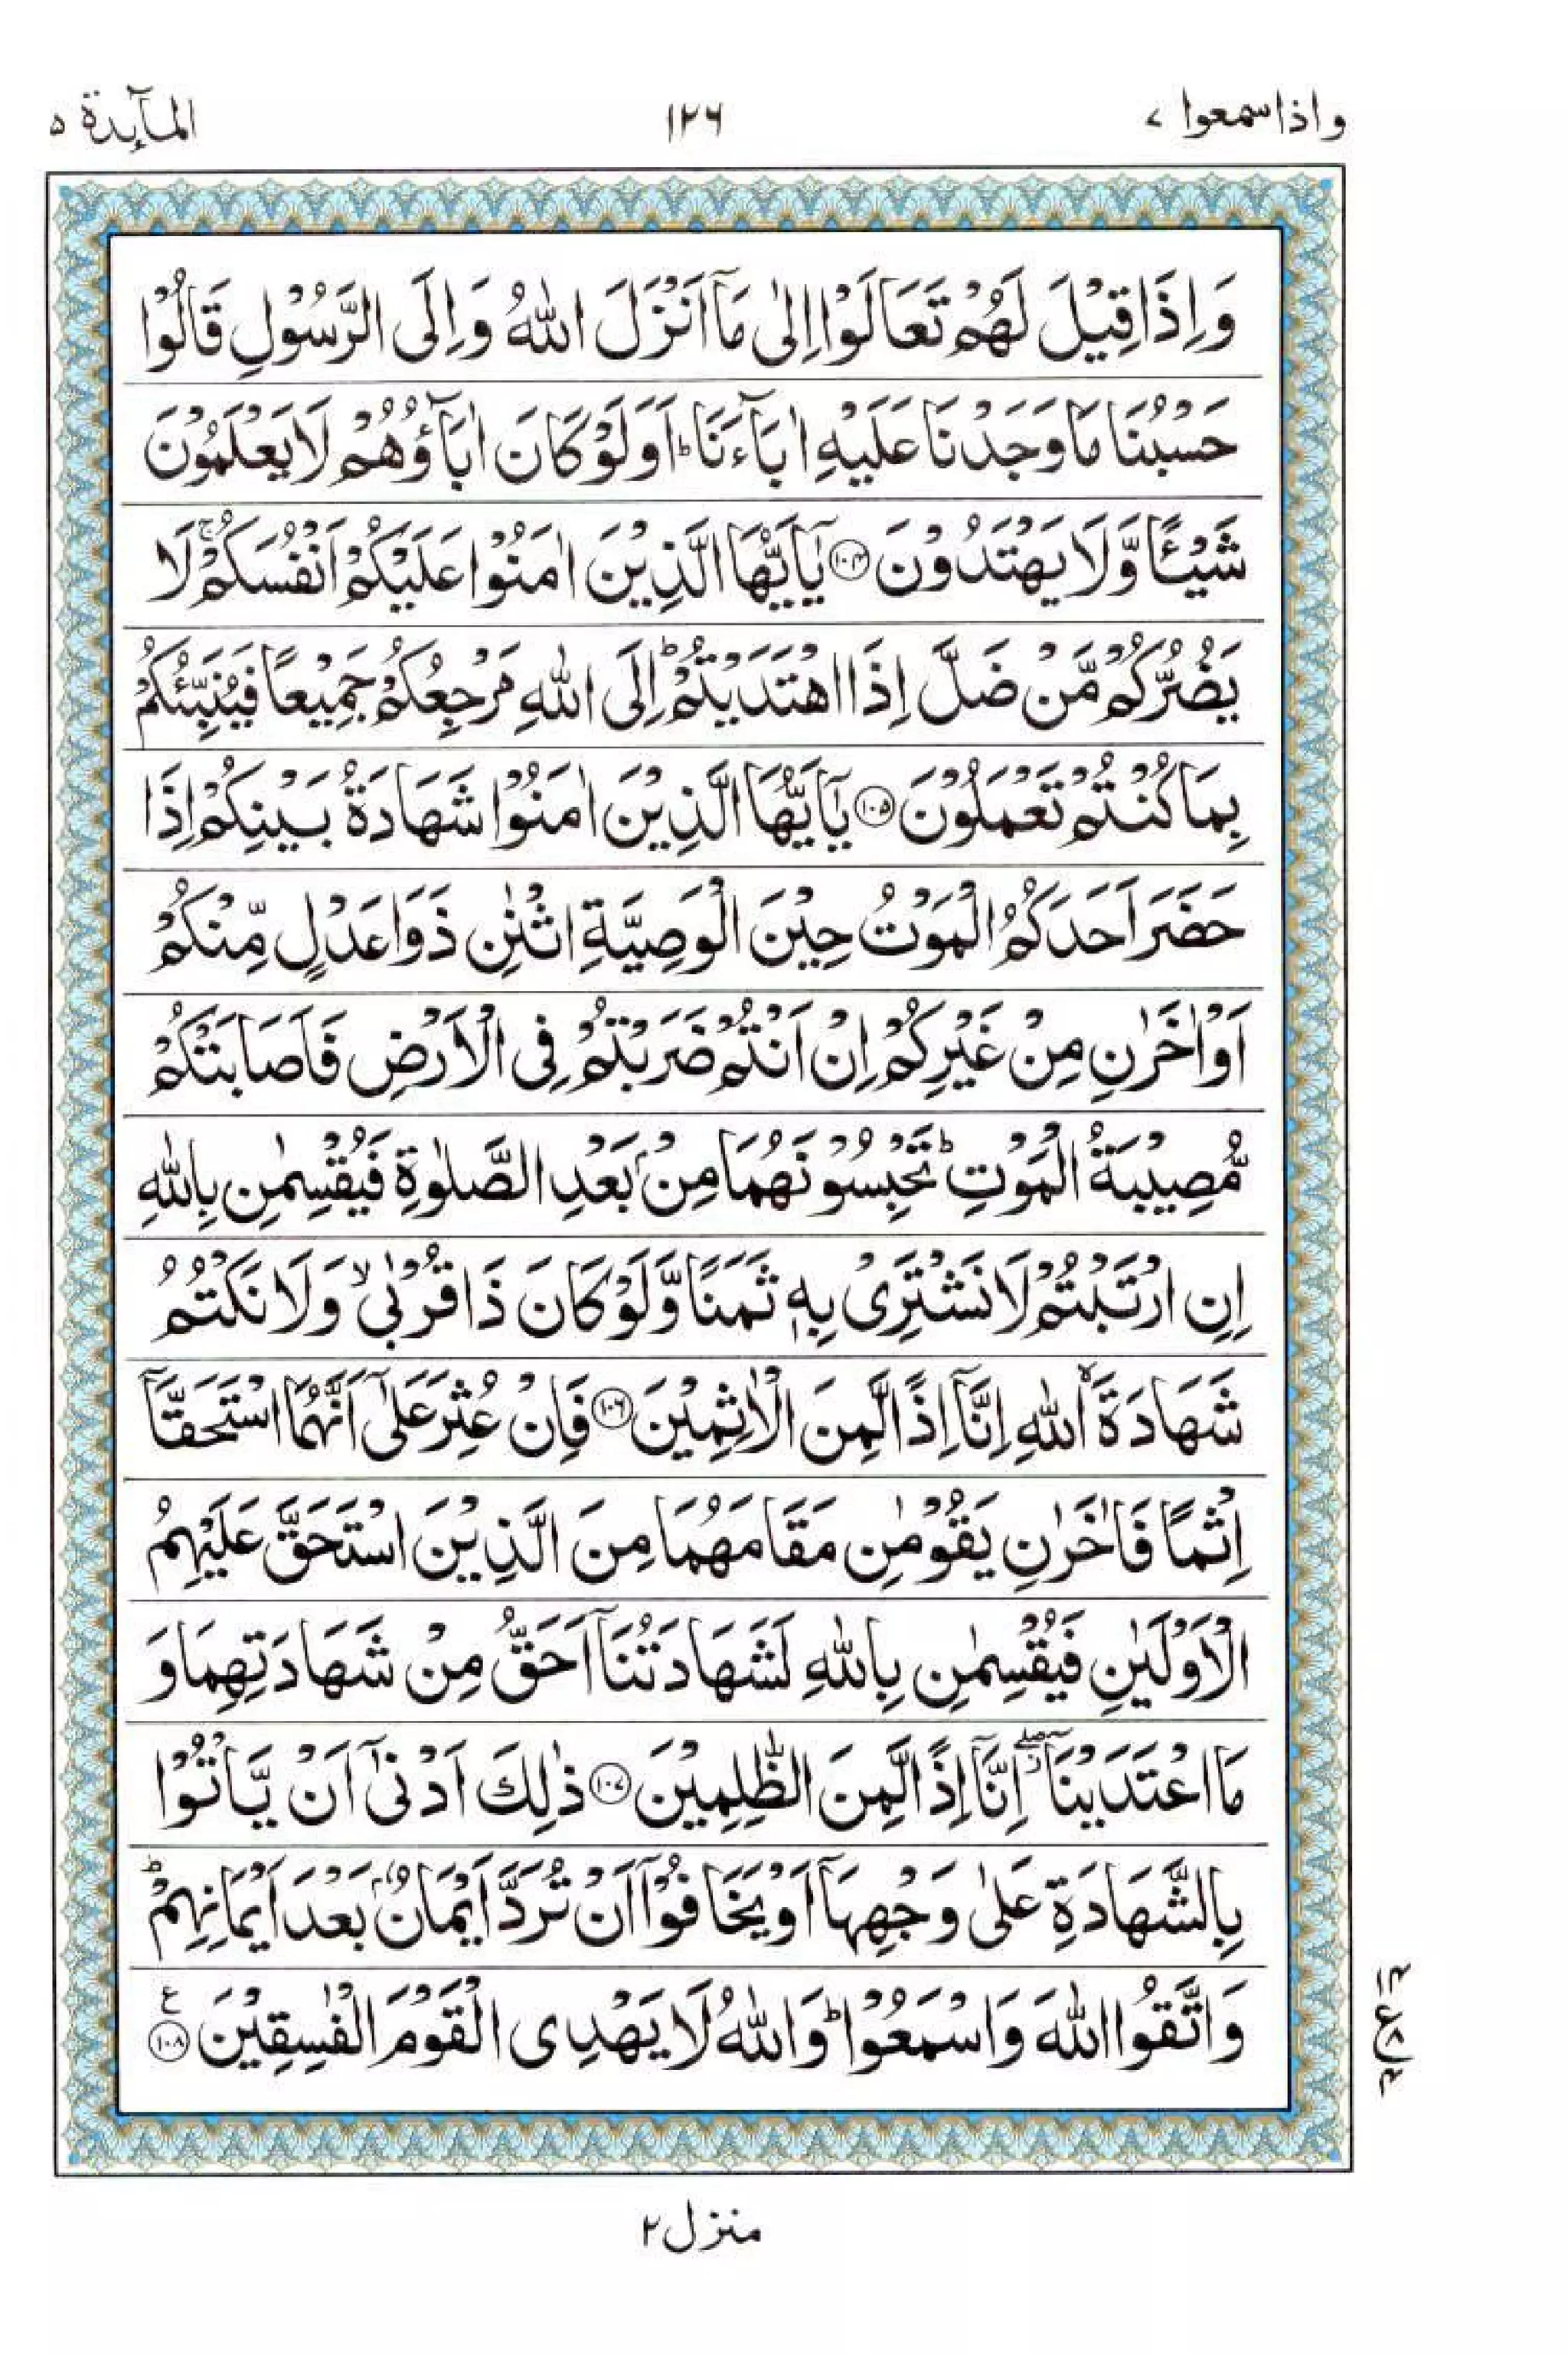 واذاسمعوا ٧
١٢٦
المآىِٕدة ٥
وَاِذَا قِيْلَ لَهُمْ تَعَالَوْا اِلٰى مَاۤ اَنْزَلَ اللّٰهُ وَاِلَى الرَّسُوْلِ قَالُوْا
حَسْبُنَا مَا وَجَدْنَا عَلَيْهِ اٰبَآءَنَا ؕ اَوَلَوْ كَانَ اٰبَآؤُهُمْ لَا يَعْلَمُوْنَ
شَيْـًٔا وَّلَا يَهْتَدُوْنَ ﴿١٠٤﴾ يٰۤاَيُّهَا الَّذِيْنَ اٰمَنُوْا عَلَيْكُمْ اَنْفُسَكُمْ ۚ لَا
يَضُرُّكُمْ مَّنْ ضَلَّ اِذَا اهْتَدَيْتُمْ ؕ اِلَى اللّٰهِ مَرْجِعُكُمْ جَمِيْعًا فَيُنَبِّئُكُمْ
بِمَا كُنْتُمْ تَعْمَلُوْنَ ﴿١٠٥﴾ يٰۤاَيُّهَا الَّذِيْنَ اٰمَنُوْا شَهَادَةُ بَيْنِكُمْ اِذَا
حَضَرَ اَحَدَكُمُ الْمَوْتُ حِيْنَ الْوَصِيَّةِ اثْنٰنِ ذَوَا عَدْلٍ مِّنْكُمْ
اَوْ اٰخَرٰنِ مِنْ غَيْرِكُمْ اِنْ اَنْتُمْ ضَرَبْتُمْ فِى الْاَرْضِ فَاَصَابَتْكُمْ
مُّصِيْبَةُ الْمَوْتِ ؕ تَحْبِسُوْنَهُمَا مِنْۢ بَعْدِ الصَّلٰوةِ فَيُقْسِمٰنِ بِاللّٰهِ
اِنِ ارْتَبْتُمْ لَا نَشْتَرِىْ بِهٖ ثَمَنًا وَّلَوْ كَانَ ذَا قُرْبٰى ۙ وَلَا نَكْتُمُ
شَهَادَةَ ۙ اللّٰهِ اِنَّاۤ اِذًا لَّمِنَ الْاٰثِمِيْنَ ﴿١٠٦﴾ فَاِنْ عُثِرَ عَلٰۤى اَنَّهُمَا اسْتَحَقَّاۤ
اِثْمًا فَاٰخَرٰنِ يَقُوْمٰنِ مَقَامَهُمَا مِنَ الَّذِيْنَ اسْتَحَقَّ عَلَيْهِمُ
الْاَوْلَيٰنِ فَيُقْسِمٰنِ بِاللّٰهِ لَشَهَادَتُنَاۤ اَحَقُّ مِنْ شَهَادَتِهِمَا وَ
مَا اعْتَدَيْنَاۤ ۖؗ اِنَّاۤ اِذًا لَّمِنَ الظّٰلِمِيْنَ ﴿١٠٧﴾ ذٰلِكَ اَدْنٰۤى اَنْ يَّاْتُوْا
بِالشَّهَادَةِ عَلٰى وَجْهِهَاۤ اَوْ يَخَافُوْۤا اَنْ تُرَدَّ اَيْمَانٌۢ بَعْدَ اَيْمَانِهِمْ ؕ
وَاتَّقُوا اللّٰهَ وَاسْمَعُوْا ؕ وَاللّٰهُ لَا يَهْدِى الْقَوْمَ الْفٰسِقِيْنَ ﴿١٠٨﴾ ع
منزل ٢